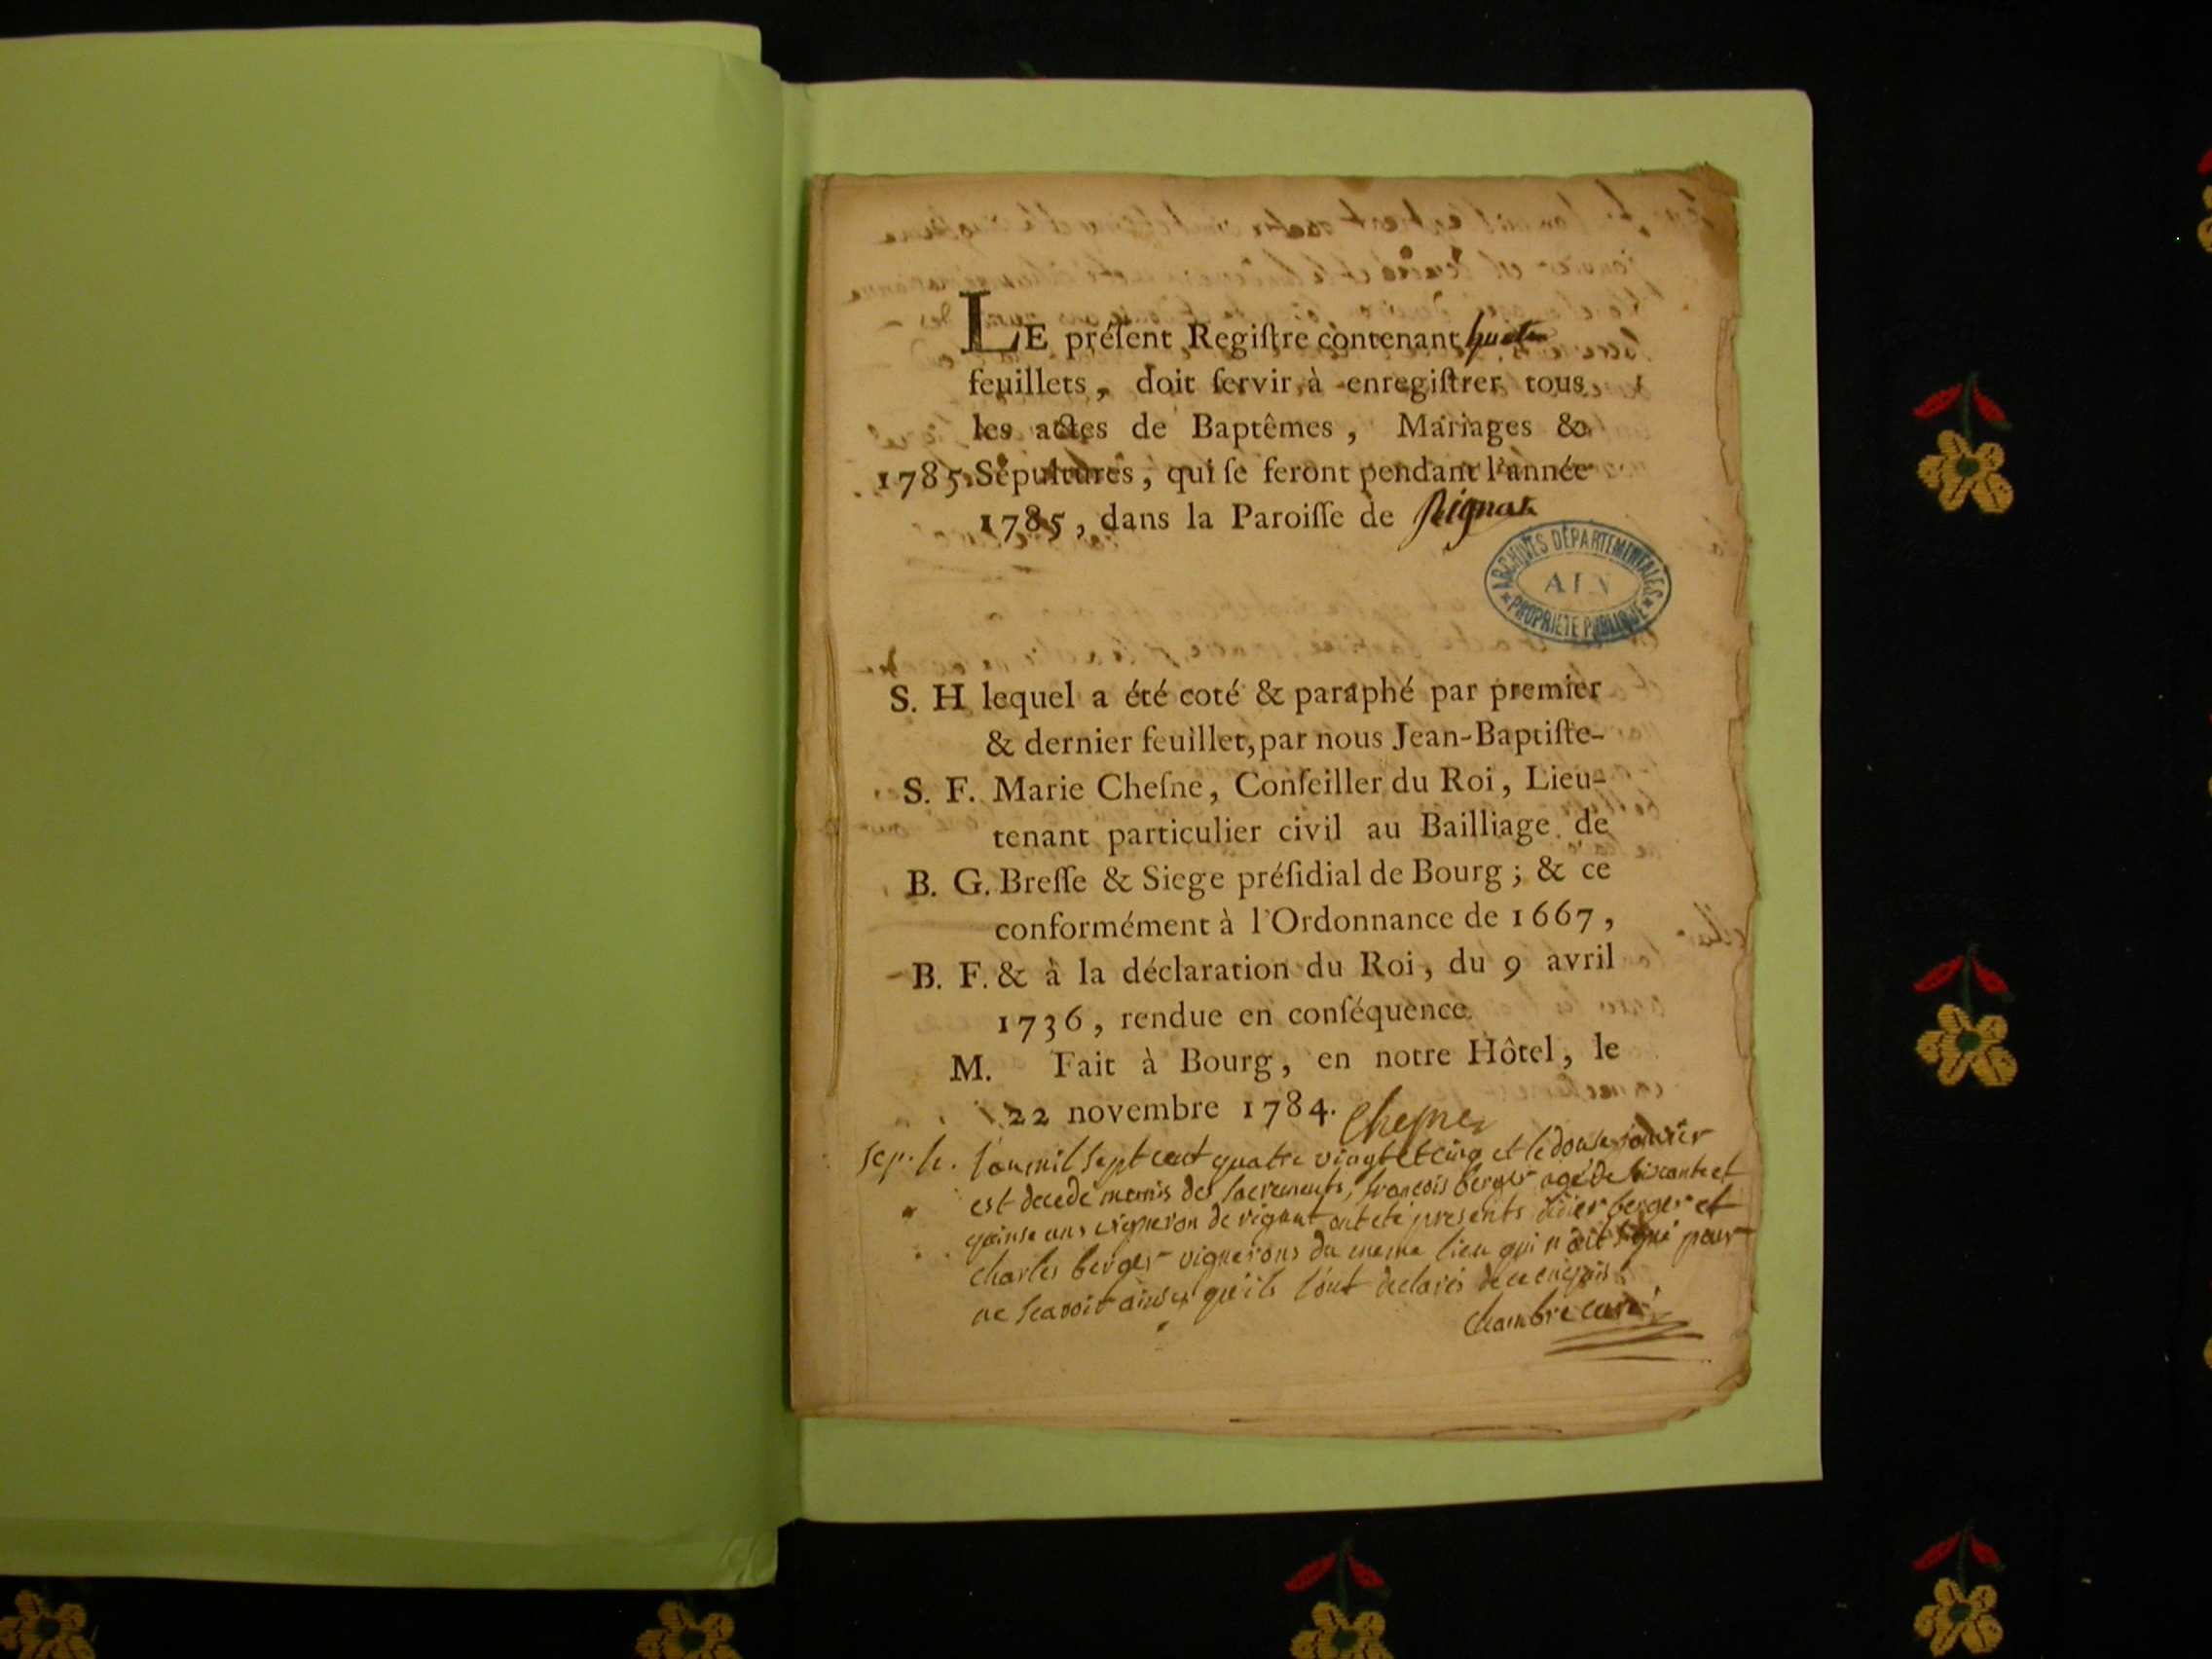 LE préſent Regiſtre contenant huit
feuillets, doit ſervir à enregiſtrer tous
les actes de Baptêmes, Mariages &
1785. Sépultures, qui ſe feront pendant l'année
1785, dans la Paroiſſe de Rignat
ARCHIVES DÉPARTEMENTALES
AIN
PROPRIÉTÉ PUBLIQUE
S. H lequel a été coté & paraphé par premier
& dernier feuillet, par nous Jean-Baptiſte-
S. F. Marie Cheſne, Conſeiller du Roi, Lieu-
tenant particulier civil au Bailliage de
B. G. Breſſe & Siege préſidial de Bourg; & ce
conformément à l'Ordonnance de 1667,
B. F. & à la déclaration du Roi, du 9 avril
1736, rendue en conſéquence.
M. Fait à Bourg, en notre Hôtel, le
22 novembre 1784. Chesne
Sep. h. l'an mil sept cent quatre vingt et cinq et le douse janvier
est decedé munis des sacrements, francois berger agé de soiscante et
quinse ans vigneron de rignat ont eté presents didier berger et
charles berger vignerons du meme lieu qui n'ont signé pour
ne scavoir ainsy qu'ils l'ont declarés de ce enquis
chambre curé